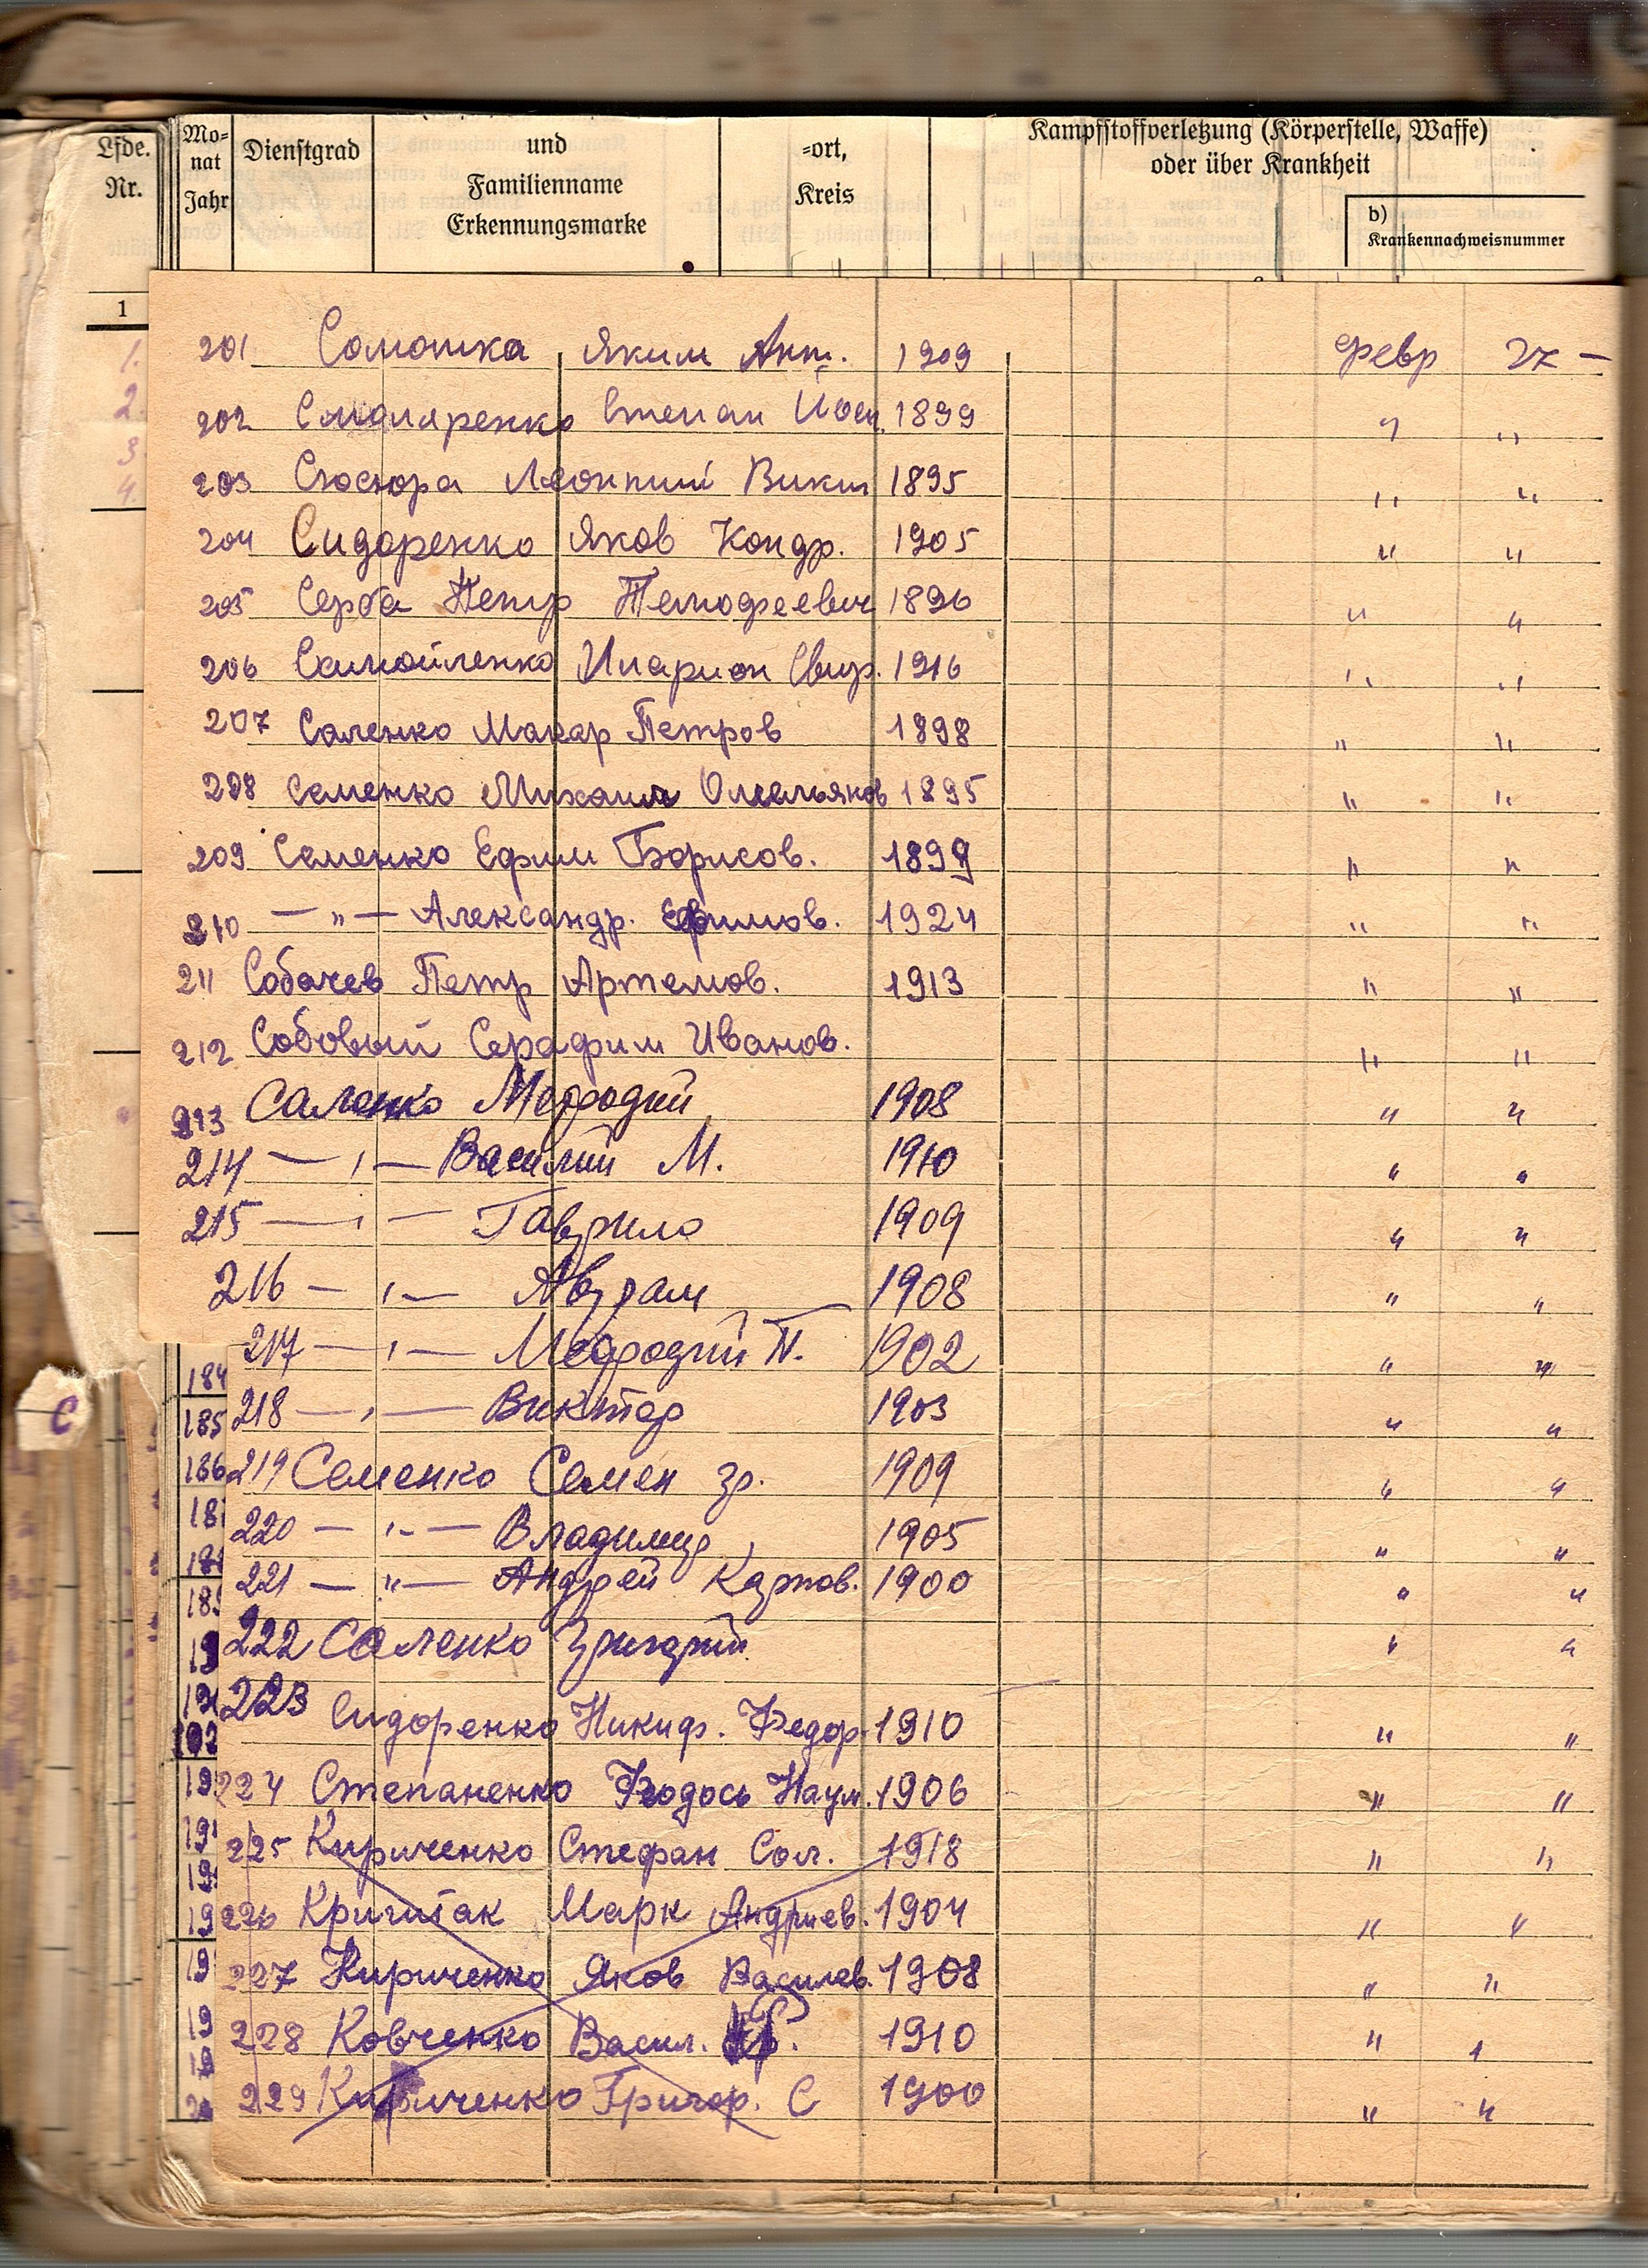 Lfde. Nr.
Mo-nat Jahr
Dienstgrad
und Familienname Erkennungsmarke
-ort, Kreis
Kampfstoffverletzung (Körperstelle, Waffe) oder über Krankheit
b) Krankennachweisnummer
1
201 Соломка Яким Ант. 1909 февр 27 —
202 Смоляренко Степан Йосип. 1899 " "
203 Сюсюра Леонтий Викт 1895 " "
204 Сидоренко Яков Кондр. 1905 " "
205 Серба Петр Темофеевич 1896 " "
206 Самойленко Иларион Свир. 1916 " "
207 Саленко Макар Петров 1898 " "
208 Семенко Михаил Омельянов 1895 " "
209 Семенко Ефим Борисов. 1899 " "
210 — " — Александр. Ефимов. 1924 " "
211 Собачев Петр Артемов. 1913 " "
212 Собовый Серафим Иванов. " "
213 Саленко Мефодий 1908 " "
214 — " — Василий М. 1910 " "
215 — " — Гаврило 1909 " "
216 — " — Аврам 1908 " "
217 — " — Мефодий П. 1902 " "
218 — " — Виктор 1903 " "
219 Семенко Семен Гр. 1909 " "
220 — " — Владимир 1905 " "
221 — " — Андрей Карпов. 1900 " "
222 Саленко Григорий " "
223 Сидоренко Никиф. Федор. 1910 " "
224 Степаненко Феодось Наум. 1906 " "
225 Кириченко Стефан Сол. 1918 " "
226 Андриев. 1904 " "
Марк
227 Кириченко Яков Василев. 1908 " "
228 Ковченко Васил. 1910 " "
229 Кириченко Григор. С 1900 " "
С
184
185
186